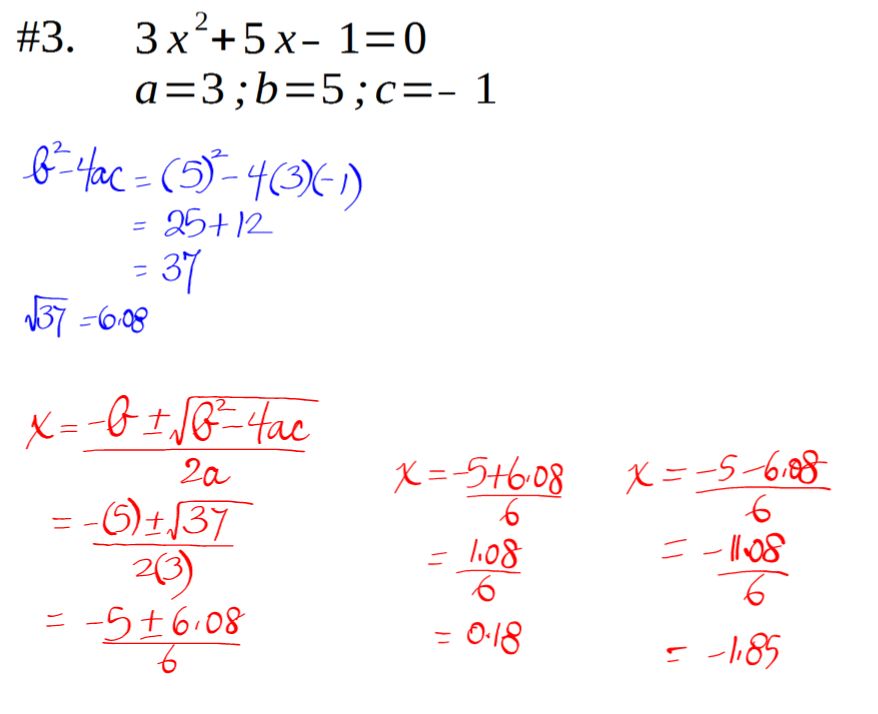 #3. 3x²+5x– 1=0
a=3;b=5;c=– 1
b²-4ac = (5)²-4(3)(-1)
= 25+12
= 37
√37 = 6.08
x = (-b ± √(b²-4ac))/(2a)
= (-(5) ± √37)/(2(3))
= (-5 ± 6.08)/6
x = (-5+6.08)/6
= 1.08/6
= 0.18
x = (-5-6.08)/6
= -11.08/6
= -1.85